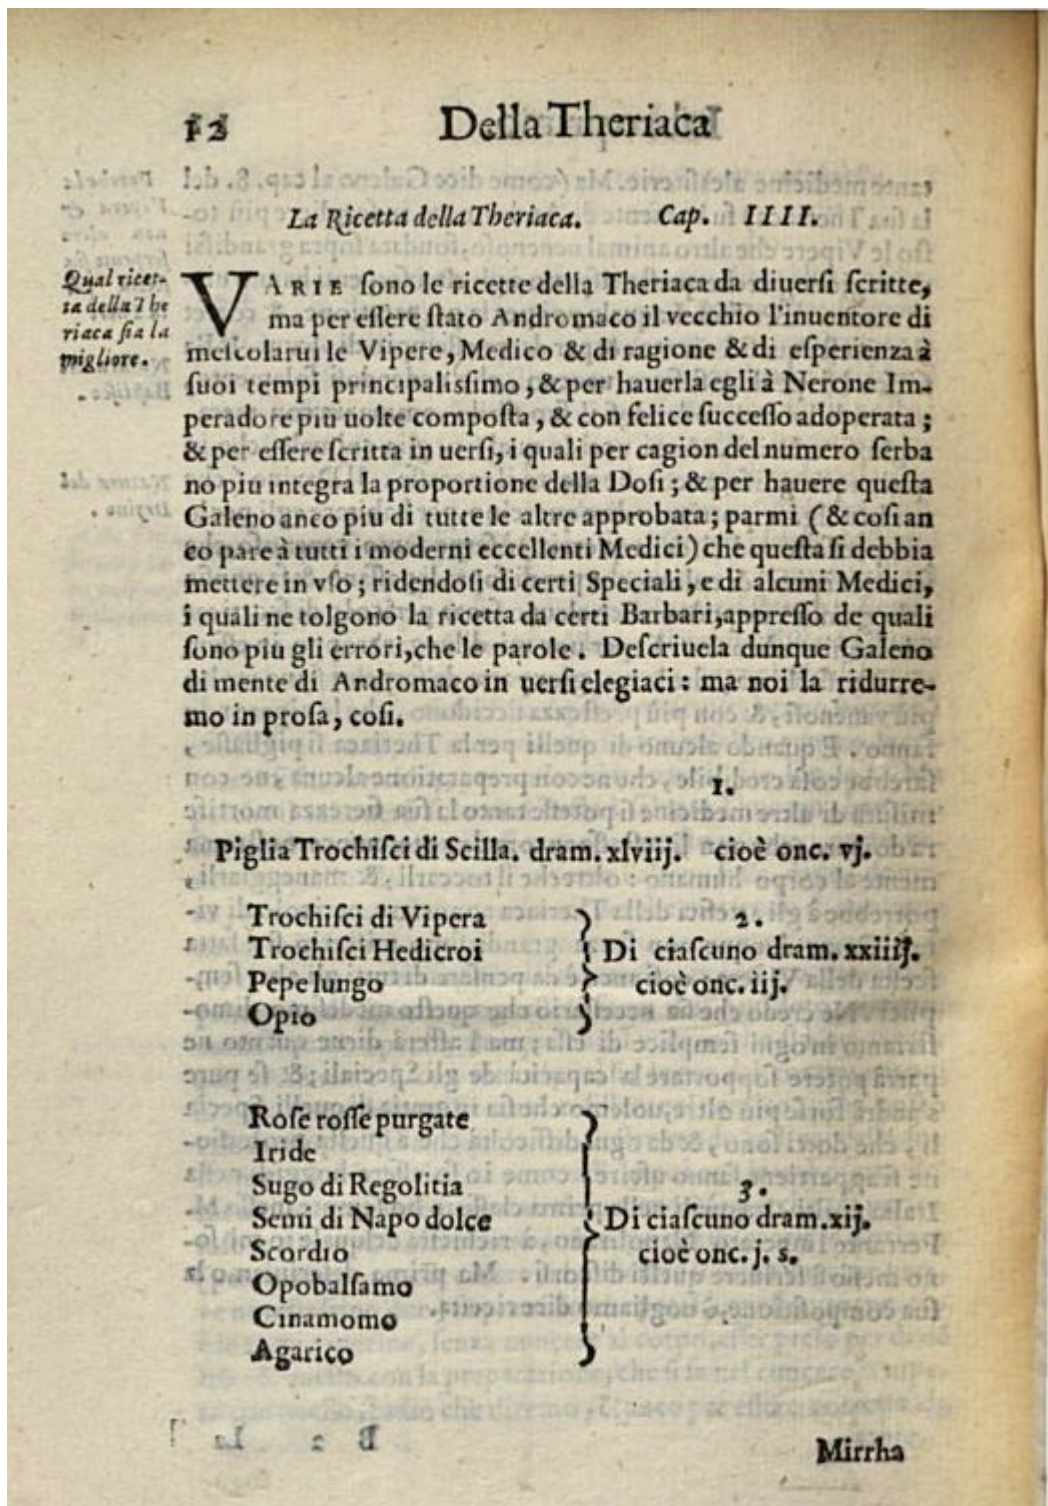 12 Della Theriaca
La Ricetta della Theriaca. Cap. IIII.
Qual ricet-
ta della The
riaca ſia la
migliore.
VARIE ſono le ricette della Theriaca da diuerſi ſcritte,
ma per eſſere ſtato Andromaco il vecchio l'inuentore di
meſcolarui le Vipere, Medico & di ragione & di eſperienza à
ſuoi tempi principaliſſimo, & per hauerla egli à Nerone Im-
peradore piu uolte compoſta, & con felice ſucceſſo adoperata;
& per eſſere ſcritta in uerſi, i quali per cagion del numero ſerba
no piu integra la proportione della Doſi; & per hauere queſta
Galeno anco piu di tutte le altre approbata; parmi (& coſi an
co pare à tutti i moderni eccellenti Medici) che queſta ſi debbia
mettere in vſo; ridendoſi di certi Speciali, e di alcuni Medici,
i quali ne tolgono la ricetta da certi Barbari, appreſſo de quali
ſono piu gli errori, che le parole. Deſcriuela dunque Galeno
di mente di Andromaco in uerſi elegiaci: ma noi la ridurre-
mo in proſa, coſi.
1.
Piglia Trochiſci di Scilla. dram. xlviij. cioè onc. vj.
Trochiſci di Vipera
Trochiſci Hedicroi
Pepe lungo
Opio
2.
Di ciaſcuno dram. xxiiij.
cioè onc. iij.
Roſe roſſe purgate
Iride
Sugo di Regolitia
Semi di Napo dolce
Scordio
Opobalſamo
Cinamomo
Agarico
3.
Di ciaſcuno dram. xij.
cioè onc. j. s.
Mirrha